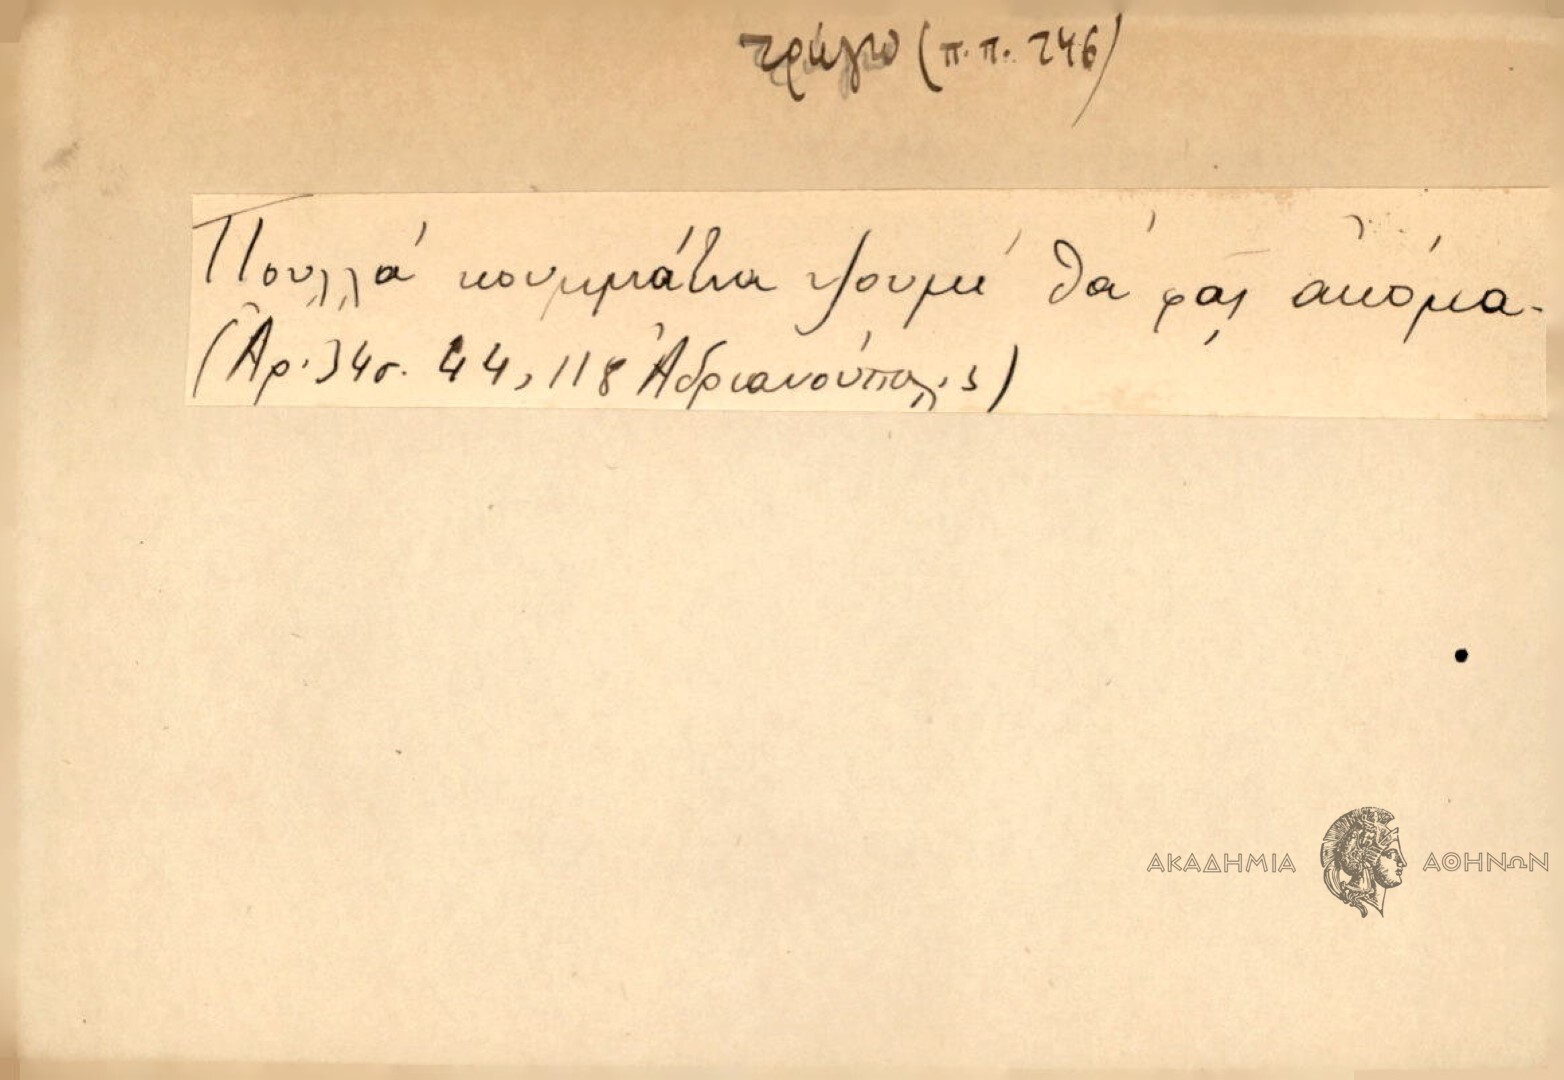 τρώγω (π.π. 246)
Πουλλὰ κουμμάτια ψουμὶ θὰ φᾷς ἀκόμα.
(Ἀρ. 34 σ. 44, 118 Ἀδριανούπολις)
ΑΚΑΔΗΜΙΑ ΑΘΗΝΩΝ